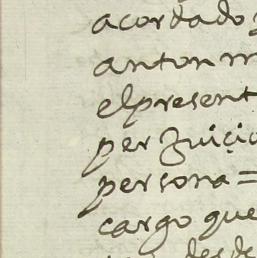 acordado
anton
el present
perzuicio
persona =
cargo que
desde